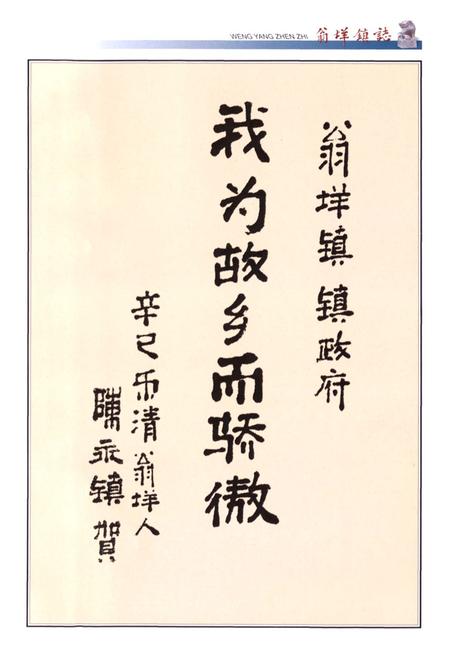 WENG YANG ZHEN ZHI 翁垟鎮誌
翁垟镇镇政府
我为故乡而骄傲
辛巳乐清翁垟人
陳永镇賀